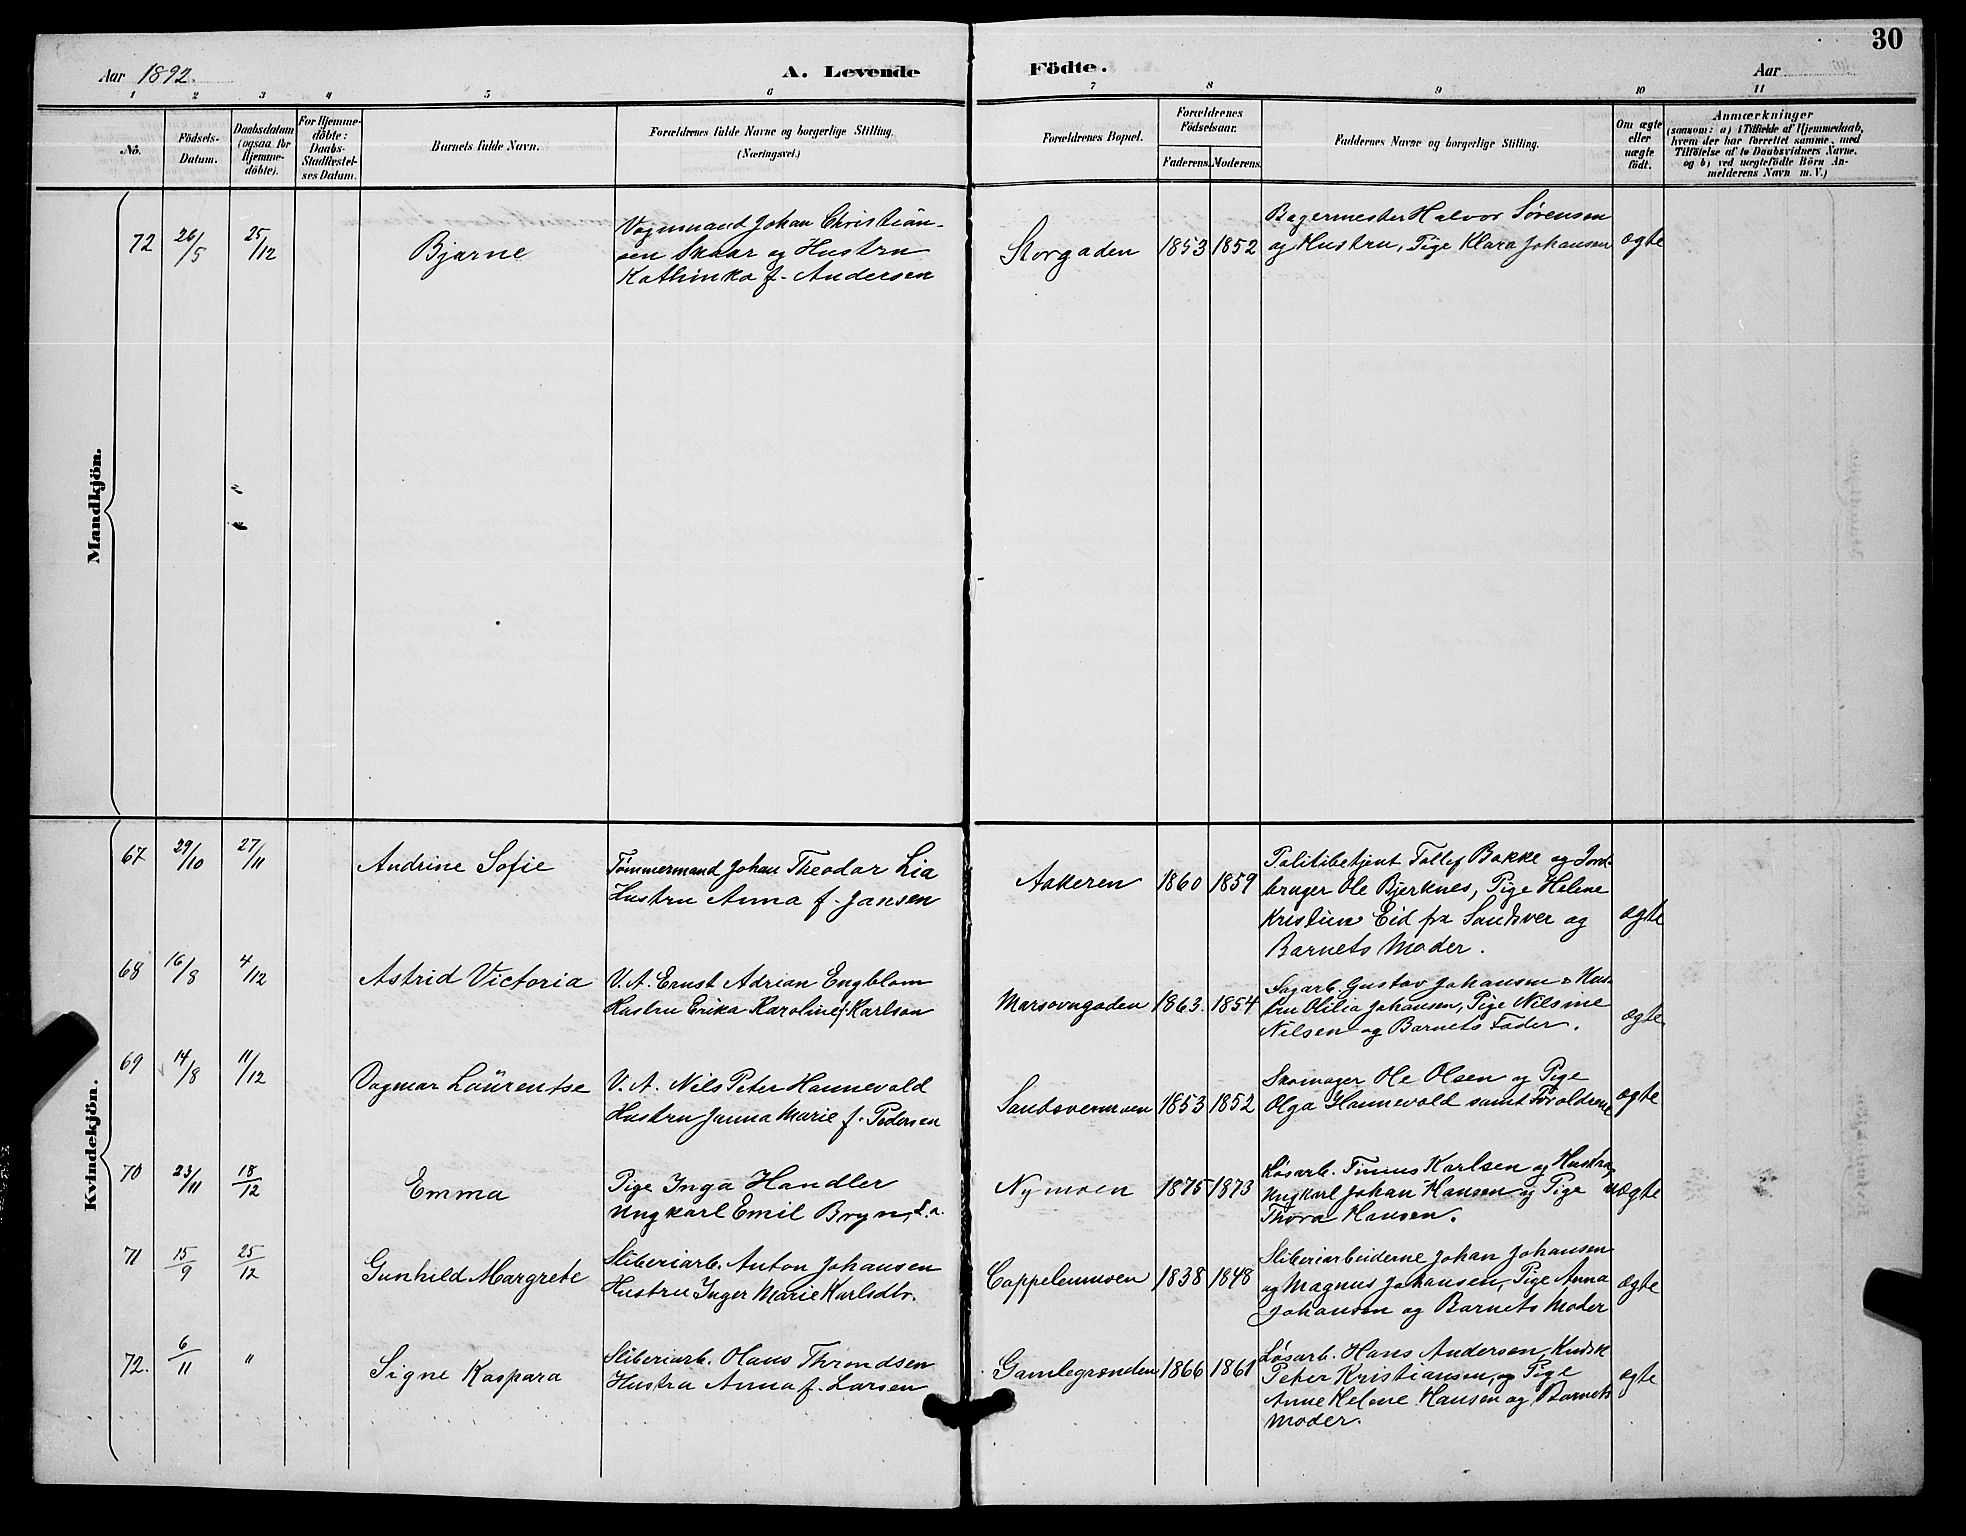 30
Aar 1892.
A. Levende Födte.
Aar
1 2 3 4 5 6 7 8 9 10 11
No.
Födsels-Datum.
Daabsdatum (ogsaa for Hjemme-döbte).
For Hjemme-döbte: Daabs-Stadfæstel-ses Datum.
Barnets fulde Navn.
Forældrenes fulde Navne og borgerlige Stilling.
(Næringsvei.)
Forældrenes Bopæl.
Forældrenes Födselsaar.
Faderens. Moderens.
Faddernes Navne og borgerlige Stilling.
Om ægte eller uægte födt.
Anmærkninger
(saasom: a) i Tilfælde af Hjemmedaab,
hvem der har forrettet samme, med
Tilföielse af to Daabsvidners Navne.
og b) ved uægtefödte Börn An-
melderens Navn m. V.)
Mandkjön.
72 26/5 25/12 Bjarne
Vognmand Johan Christian-
sen Skaar og Hustru
Kathinka f. Andersen
Storgaden 1853 1852
Bagermester Halvor Sørensen
og Hustru, Pige Klara Johansen
ægte
Kvindekjön.
67 29/10 27/11 Andrine Sofie
Tømmermand Johan Theodor Lia
Hustru Anna f. Jansen
Aakeren 1860 1859
Politibetjent Tollef Bakke og Jord-
bruger Ole Bjerknes, Pige Helene
Kristine Eid fra Sandsver og
Barnets Moder.
ægte
68 16/8 4/12 Astrid Victoria
V.A. Ernst Adrian Engblom
Hustru Erika Karoline f. Karlson
Marsovngaden 1863. 1854
Sagarb. Gustav Johansen & Hus-
tru Otilia Johansen, Pige Nilsine
Nilsen og Barnets Fader.
ægte
69 14/8 11/12 Dagmar Laurentse
V.A. Nils Peter Hannevold
Hustru Janna Marie f. Pedersen
Sandsvermoen 1853 1852
Skomager Ole Olsen og Pige
Olga Hannevold samt Forældrene
ægte
70 23/11 18/12 Emma
Pige Inga Handler
Ungkarl Emil Bryn, S.a.
Nymoen 1875 1873
Løsarb. Karlsen og Hustru,
Ungkarl Johan Hansen og Pige
Thora Hansen.
uægte
71 15/9 25/12 Gunhild Margrete
Sliberiarb. Anton Johansen
Hustru Inger Marie Karlsdtr.
Cappelenmoen 1838 1848
Sliberiarbeiderne Johan Johansen
og Magnus Johansen, Pige Anna
Johansen og Barnets Moder
ægte
72. 6/11 " Signe Kaspara
Sliberiarb. Olaus Throndsen
Hustru Anna f. Larsen
Gamlegrenden 1866 1861
Løsarb. Hans Andersen, Kudsk
Peter Kristiansen, og Pige
Anne Helene Hansen og Barnets
Moder.
ægte